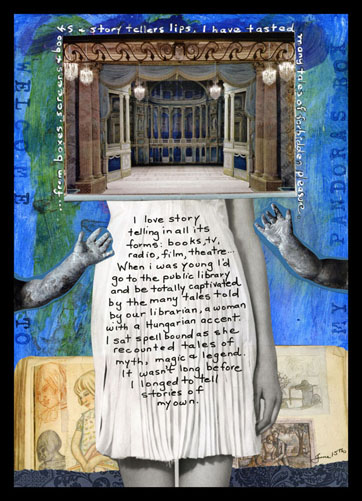 ...from boxes, screens & boo
ks & story tellers lips, I have tasted
many tales of forbidden pleasure
WELCOME TO
MY PANDORAS BOX
I love story
telling in all its
forms: books, tv,
radio, film, theatre...
When i was young I'd
go to the public library
and be totally captivated
by the many tales told
by our librarian, a woman
with a Hungarian accent.
I sat spell bound as she
recounted tales of
myth, magic & legend.
It wasn't long before
I longed to tell
stories of
my own.
June 15th